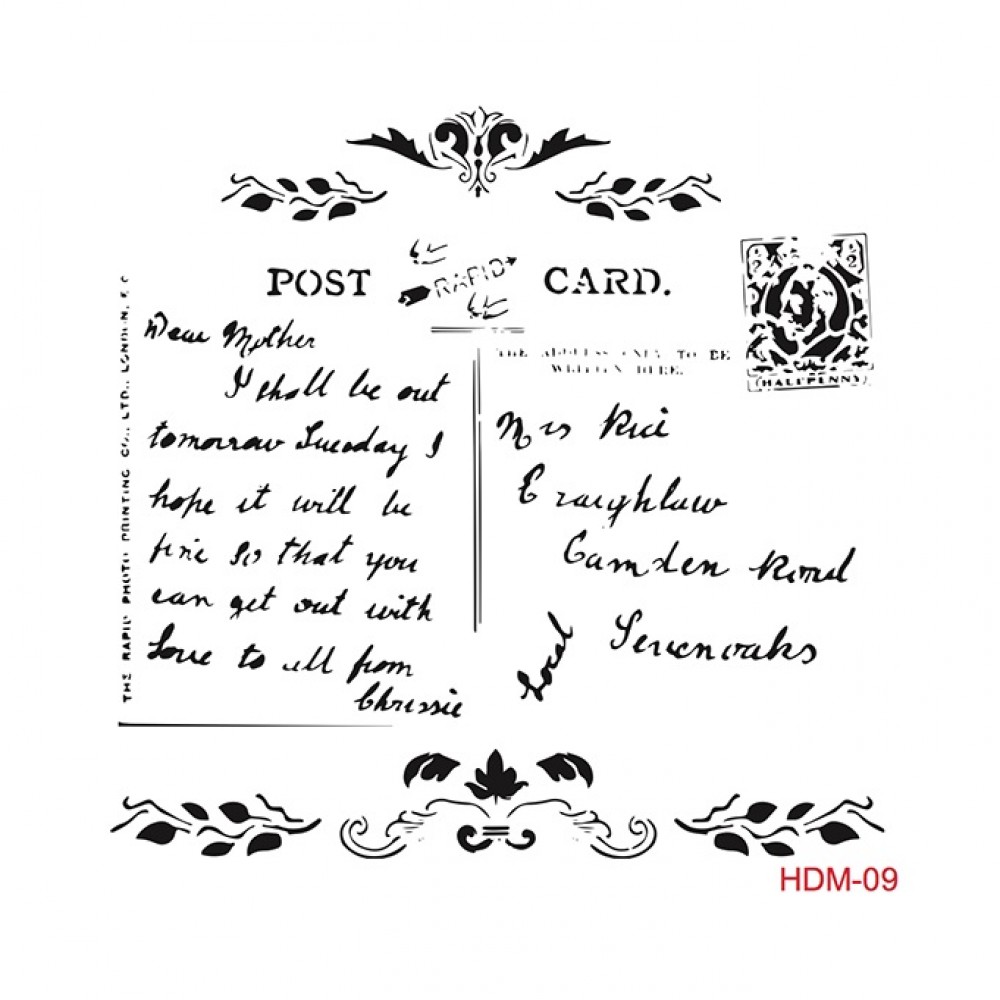 POST RAPID CARD.
THE RAPID PHOTO PRINTING CO., LTD., LONDON, E.C
Dear Mother
I shall be out
tomorrow Tuesday I
hope it will be
fine so that you
can get out with
Love to all from
Chrissie
THE ADDRESS ONLY TO BE
WRITTEN HERE.
1/2 1/2
HALFPENNY
Mrs Rice
Craighlaw
Camden Road
Sevenoaks
Local
HDM-09